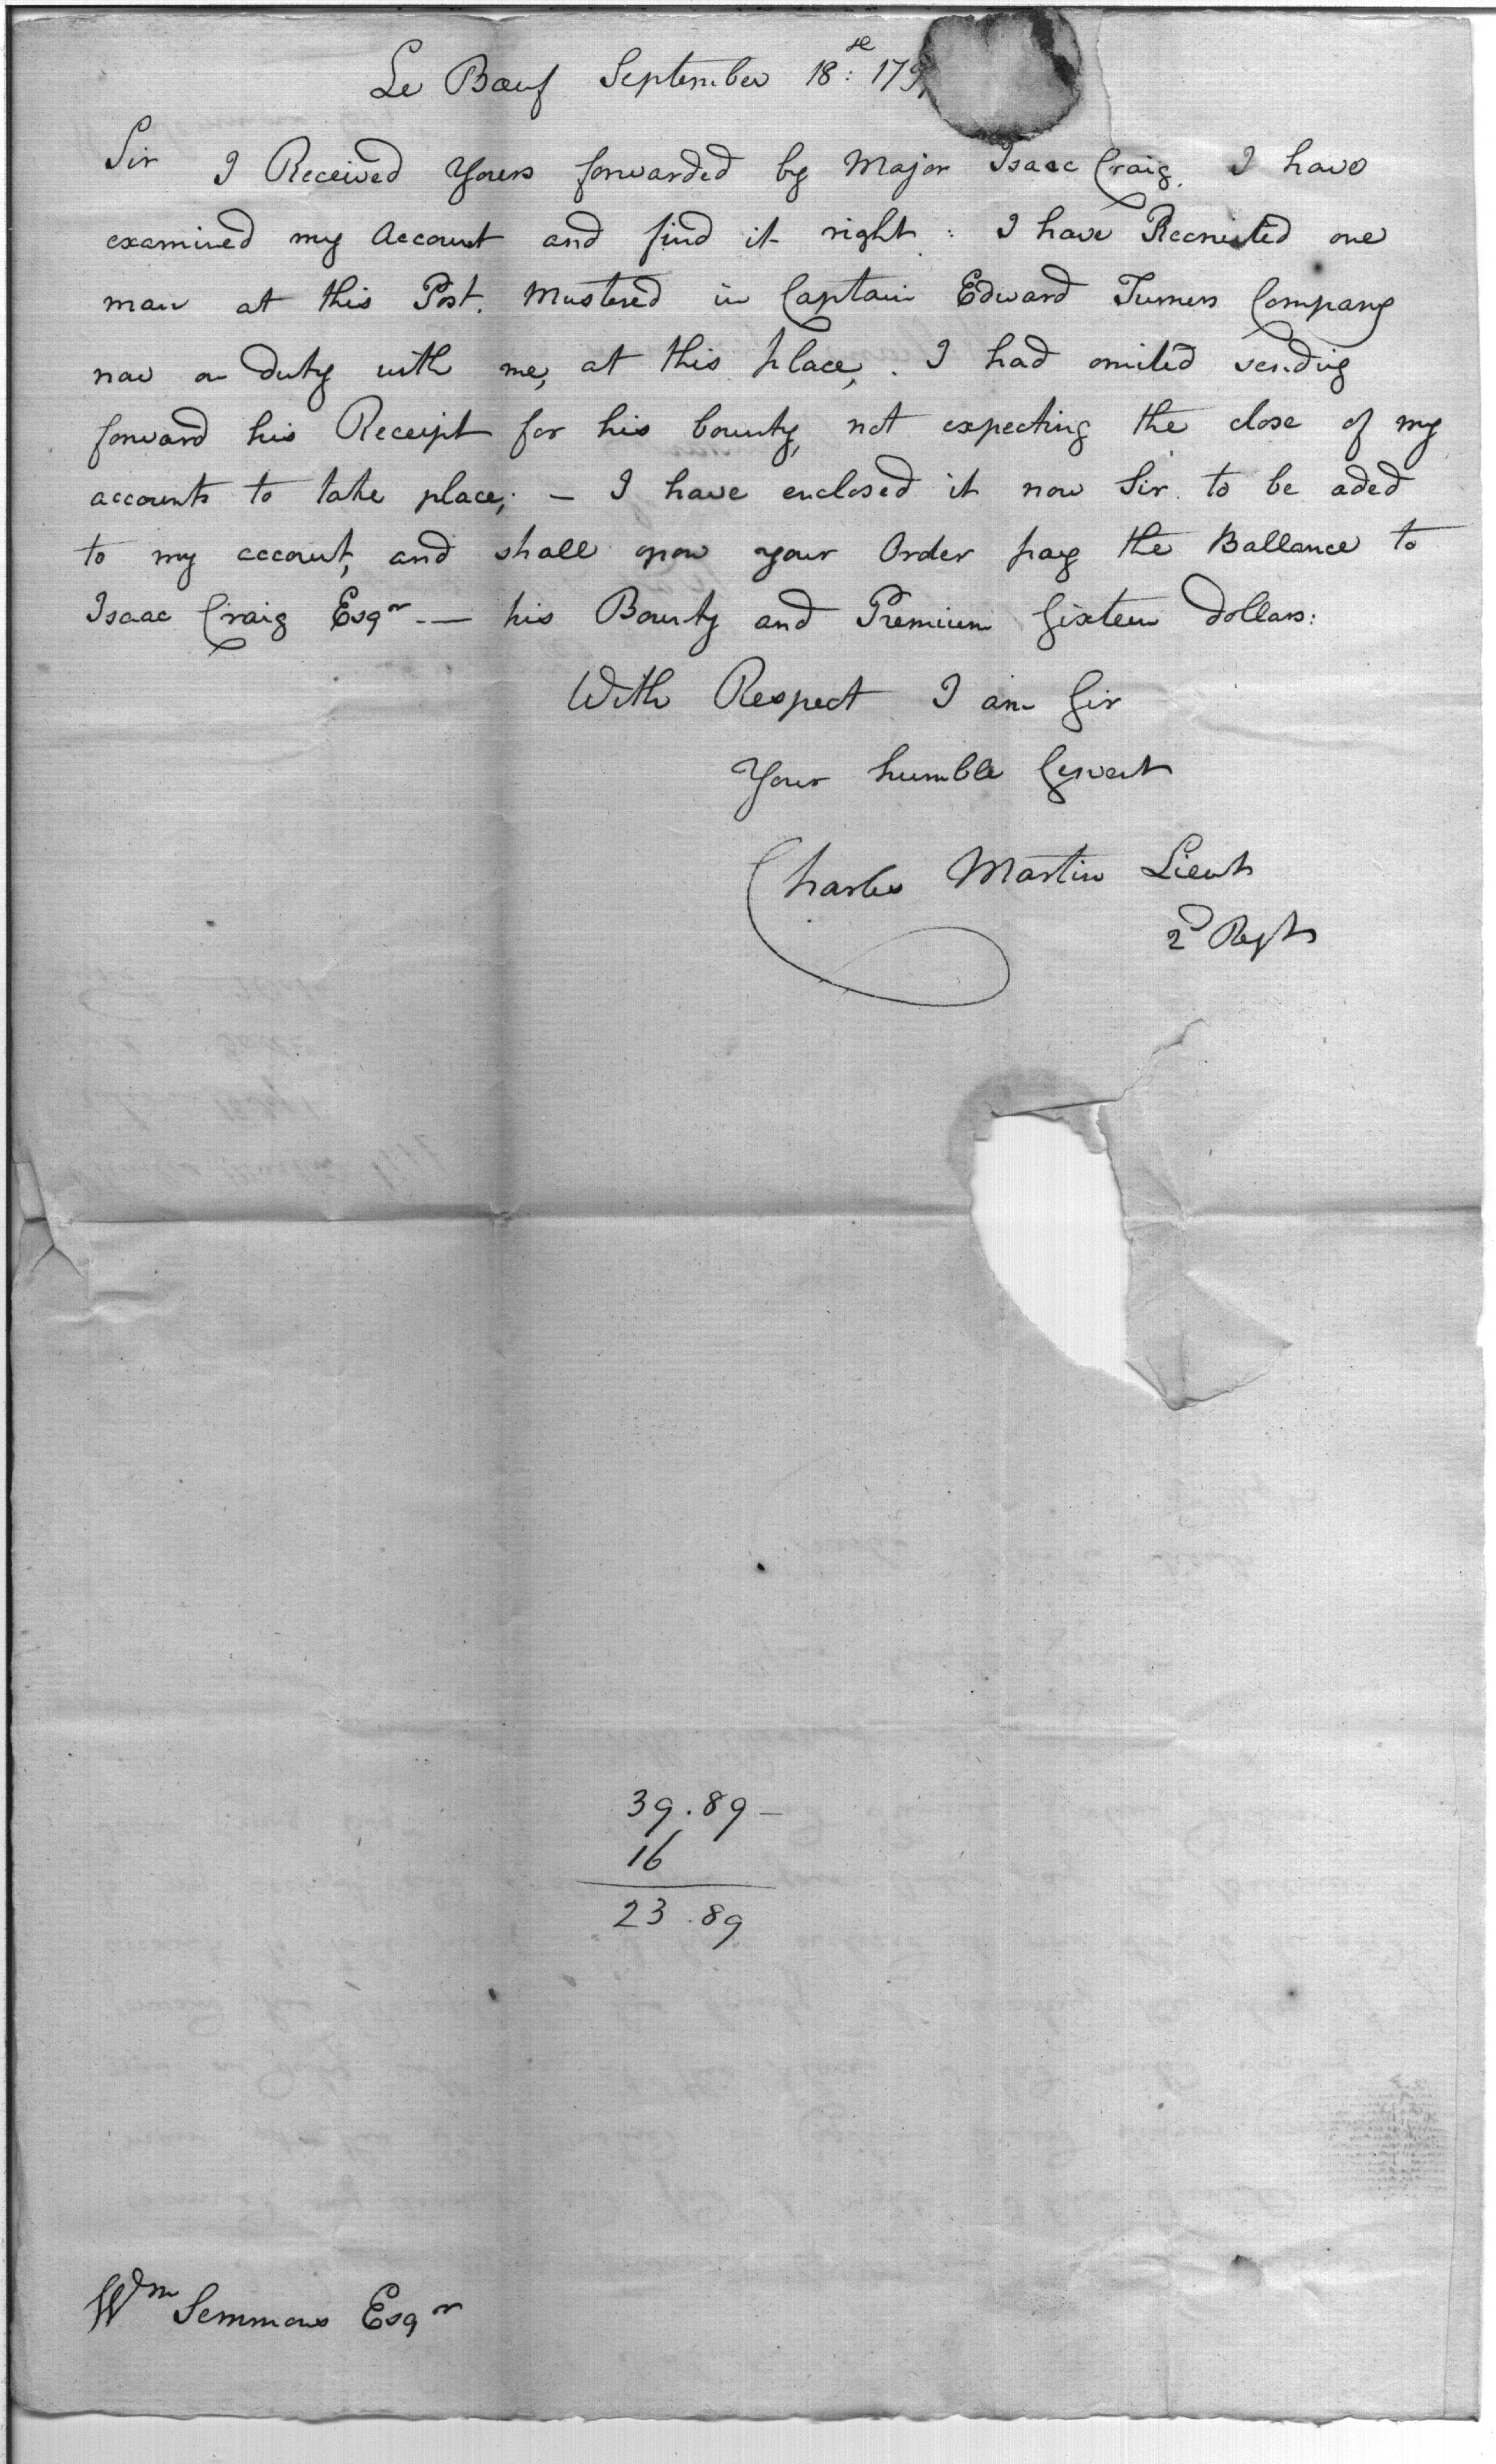 Le Bœuf September 18: 179
Sir I Received Yours forwarded by Major Isaac Craig. I have
examined my Account and find it right: I have Recruited one
man at this Post. Mustered in Captain Edward Turners Company
now on duty with me, at this place,. I had omited sending
forward his Receipt for his bounty, not expecting the close of my
accounts to take place; — I have enclosed it now Sir. to be aded
to my account, and shall upon your Order pay the Ballance to
Isaac Craig Esqr — his Bounty and Premium Sixteen dollars:
With Respect I am Sir
Your humble Servt
Charles Martin Lieut
2d Regt
39.89 —
16
23.89
Wm Semmons Esqr